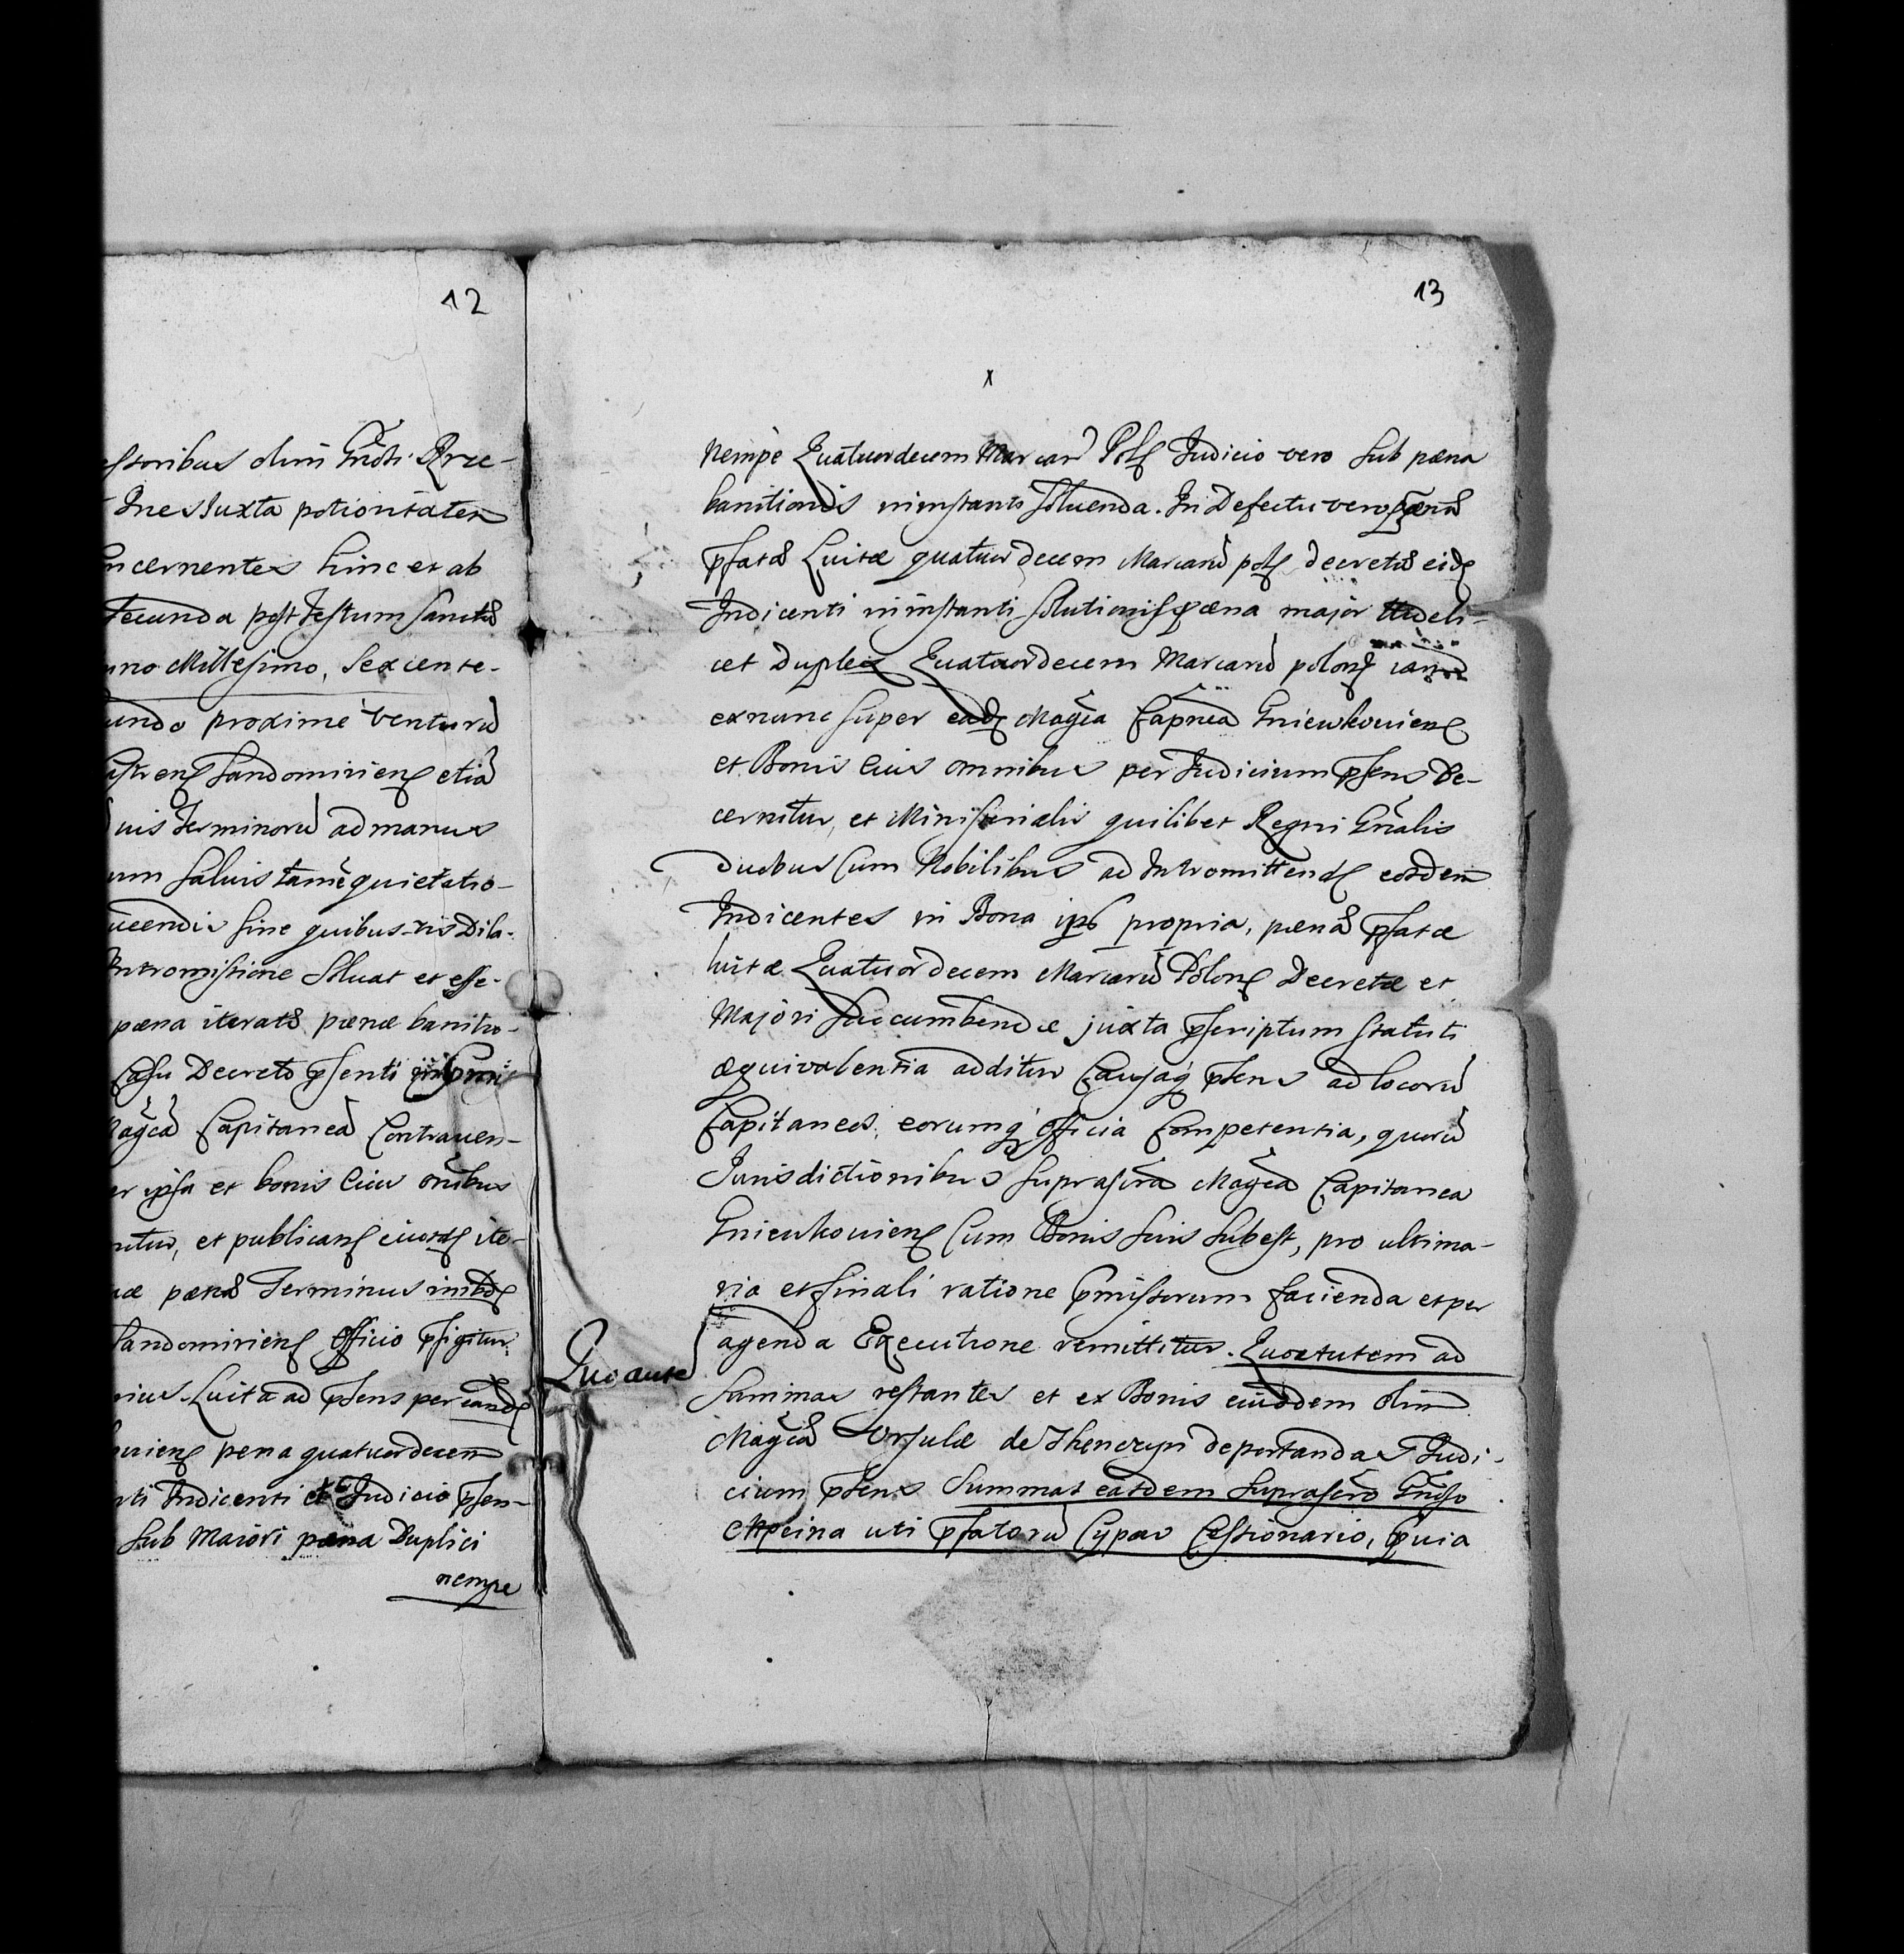 12
estoribus olim Gnõsi Rze-
Ines Iuxta potioritatem
ncernentes hinc et ab
secunda post Festum Sancta
nno Millesimo, Sexcente-
undo proxime venturũ
astrenẽ Sandomirienẽ etiã
uis Terminorũ ad manus
um saluis tamẽ quietatio-
ucendis sine quibus-vis Dila-
Intromissione soluat et effe-
pæna iteratæ pænæ banitio-
Casu Decreto psenti
Magcã Capitaneã Contrauen-
er ipsa et bonis Eius oñibus
nitur, et publicanẽ eiusdẽ ite-
pænæ Terminus inibdẽ
Sandomirienẽ Officio pfigitur.
Luita ad psens per eandẽ
uienẽ pena quatuordecem
nti Indicenti et Iudicio psen-
Sub Maiori pæna Duplici
nempe
13
x
Nempe Quatuordecem Marcarũ Polẽ Iudicio vero sub pæna
banitionis in instanti soluenda. In Defectu vero pænæ
pfatæ Luitæ quatuordecem Marcarũ polẽ decretæ eidẽ
Indicenti in instanti solutionis pæna major videli-
cet Duplex Quatuordecem Marcarũ polonẽ iam
exnunc super eadẽ Magca Capnea Gniewkouienẽ
et Bonis Eius omnibus per Iudicium psens De-
cernitur, et Ministerialis quilibet Regni Gñalis
Duobus Cum Nobilibus ad Intromittendẽ eosdem
Indicentes in Bona ips propria, pænæ pfatæ
luitæ Quatuordecem Marcarũ Polonẽ Decretæ et
Majori succumbendæ juxta pscriptum statuti
æquivalentia additur Causaq psens ad locorũ
Capitaneos, eorumq officia Competentia, quorũ
Iurisdictionibus suprascra Magca Capitanea
Gniewkouienẽ Cum Bonis suis subest, pro ultima-
ria et finali ratione pmissorum facienda et per
agenda Executione remittitur. Quo autem ad
Quo aute
summas restantes et ex Bonis eiusdem olim
Magcæ Vrsulæ de Thenczyn deportandas Iudi-
cium psens Summas easdem suprascro Gnõso
Mpcina uti pfatorũ Cypar Cessionario, quia